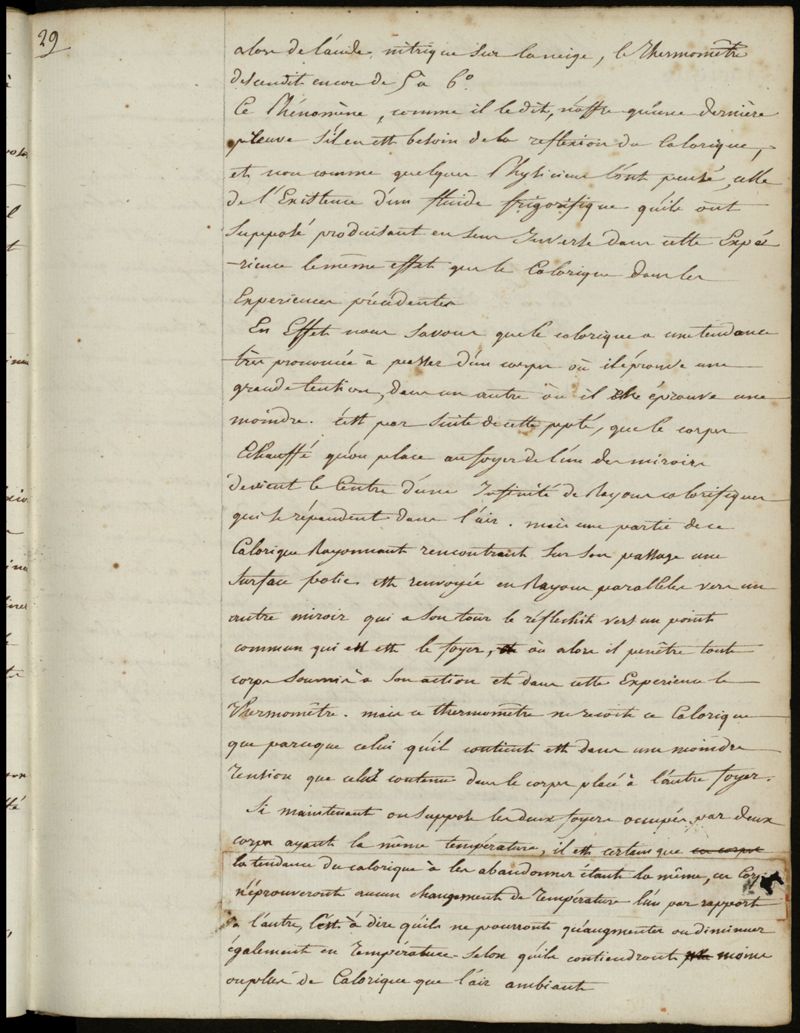 29
alors de l'acide nitrique sur la neige, le Thermomètre
descendit encore de 5 à 6°.
Ce Phénomène, comme il le dit, n'offre qu'une dernière
preuve s'il en est besoin de la reflexion du Calorique,
et non comme quelques Physiciens l'ont pensé, celle
de l'Existence d'un fluide frigorifique qu'ils ont
supposé produisant en sens Inverse dans cette Expé
-rience le même effet que le Calorique dans les
Experiences précédentes
En Effet nous savons que le calorique a une tendance
très prononcée à passer d'un corps où il éprouve une
grande tension, dans un autre où il en éprouve une
moindre. c'est par suite de cette ppté, que le corps
Echauffé qu'on place au foyer de l'un des miroirs
devient le Centre d'une Infinité de Rayons calorifiques
qui se répandent dans l'air. mais une partie de ce
Calorique Rayonnant rencontrant sur son passage une
surface polie est renvoyée en Rayons parallèles vers un
autre miroir qui a son tour le réflechit vers un point
commun qui est le foyer, où alors il penêtre tout
corps soumis à son action et dans cette Experience le
Thermomètre. mais ce thermomètre ne reçoit ce Calorique
que parceque celui qu'il contient est dans une moindre
Tension que celui contenu dans le corps placé à l'autre foyer.
Si maintenant on suppose les deux foyers occupés par deux
corps ayant la même température, il est certain que ces corps
la tendance du calorique à les abandonner étant la même, ces Corps
n'éprouveront aucun changement de Température l'un par rapport
à l'autre, c'est à dire qu'ils ne pourront qu'augmenter ou diminuer
également en Température selon qu'ils contiendront moins
ou plus de Calorique que l'air ambiant